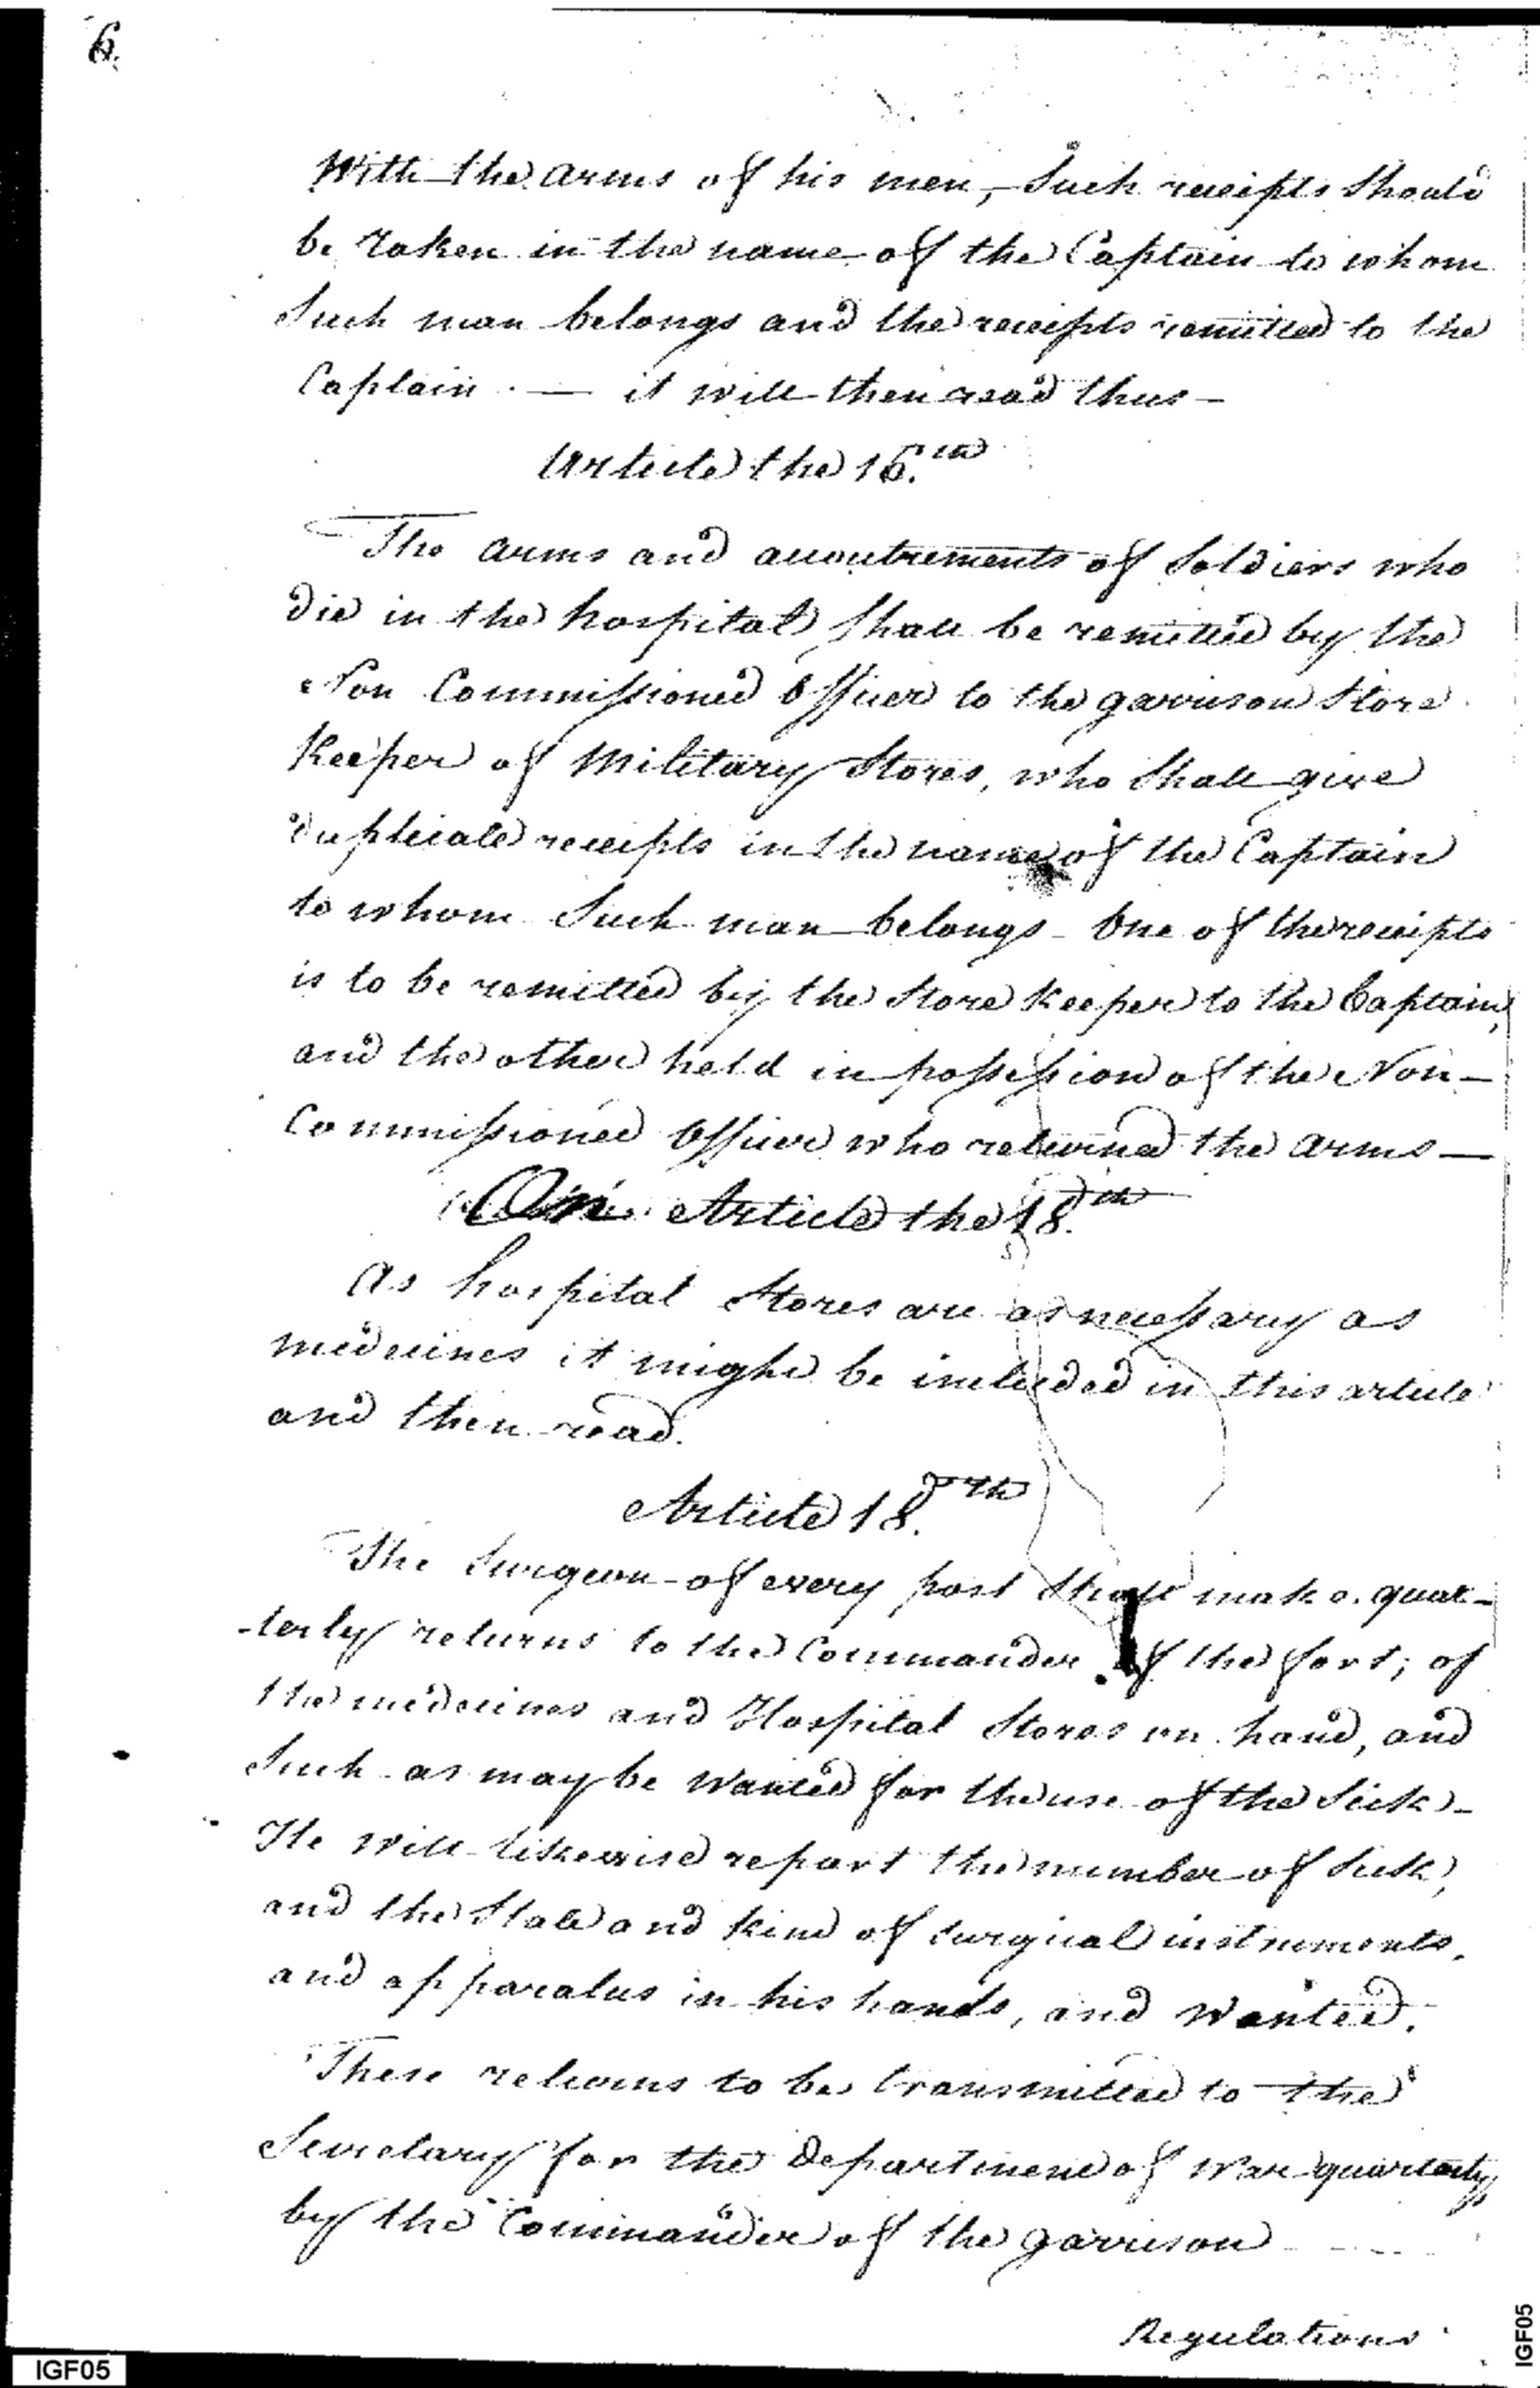 6.
With the arms of his men, - Such receipts Should
be taken in the name of the Captain to whom
Such man belongs and the receipts remitted to the
Captain. — it will then read thus -
Article the 16.th
The arms and accoutrements of Soldiers who
die in the hospital, shall be remitted by the
Non Commissioned Officer to the garrison Store
Keeper of Military Stores, who Shall give
duplicate receipts in the name of the Captain
to whom Such man belongs - One of the receipts
is to be remitted by the Store Keeper to the Captain,
and the other held in possession of the Non-
Commissioned Officer who returned the arms —
On Article the 18.th
As hospital Stores are as necessary as
medecines it might be included in this article
and then read.
Article 18.th
The Surgeon of every post Shall make quar-
-terly returns to the Commander of the fort; of
the medecines and Hospital Stores on hand, and
Such as may be Wanted for the use of the Sick -
He will likewise report the number of Sick,
and the State and kind of surgical instruments,
and apparatus in his hands, and Wanted.
These returns to be transmitted to the
Secretary for the department of War quarterly,
by the Commander of the garrison
Regulations
IGF05
IGF05